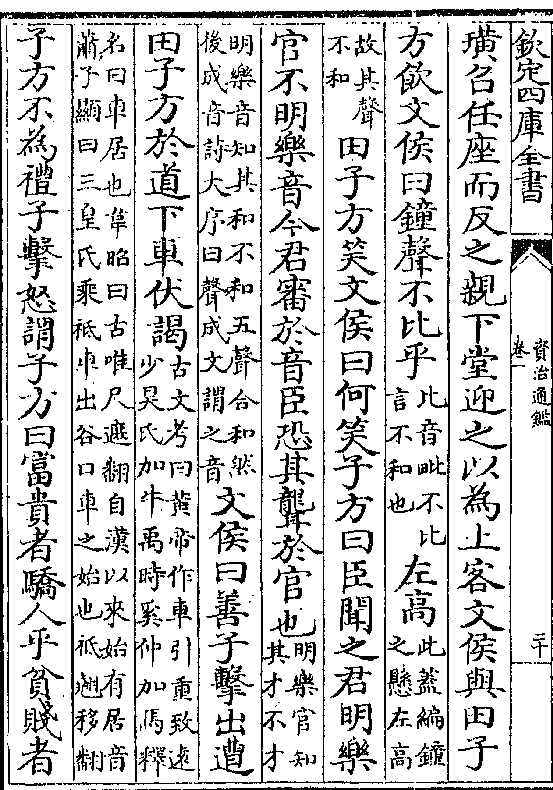 欽定四庫全書
資治通鑑
卷一
二十
璜召任座而反之親下堂迎之以為上客文侯與田子
方飲文侯曰鐘聲不比乎比音毗不比言不和也左高此蓋編鐘之懸左高
故其聲不和田子方笑文侯曰何笑子方曰臣聞之君明樂
官不明樂音今君審於音臣恐其聾於官也明樂官知其才不才
明樂音知其和不和五聲合和然後成音詩大序曰聲成文謂之音文侯曰善子擊出遭
田子方於道下車伏謁古文考曰黃帝作車引重致遠少昊氏加牛禹時奚仲加馬釋
名曰車居也韋昭曰古唯尺遮翻自漢以來始有居音蕭子顯曰三皇氏乘祗車出谷口車之始也祗翹移翻
子方不為禮子擊怒謂子方曰富貴者驕人乎貧賤者